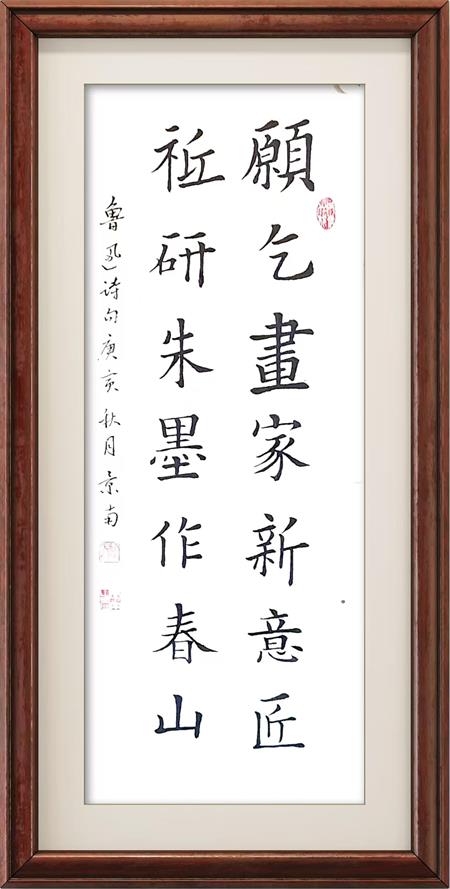 願乞畫家新意匠
祗研朱墨作春山
魯迅詩句庚寅秋月景南